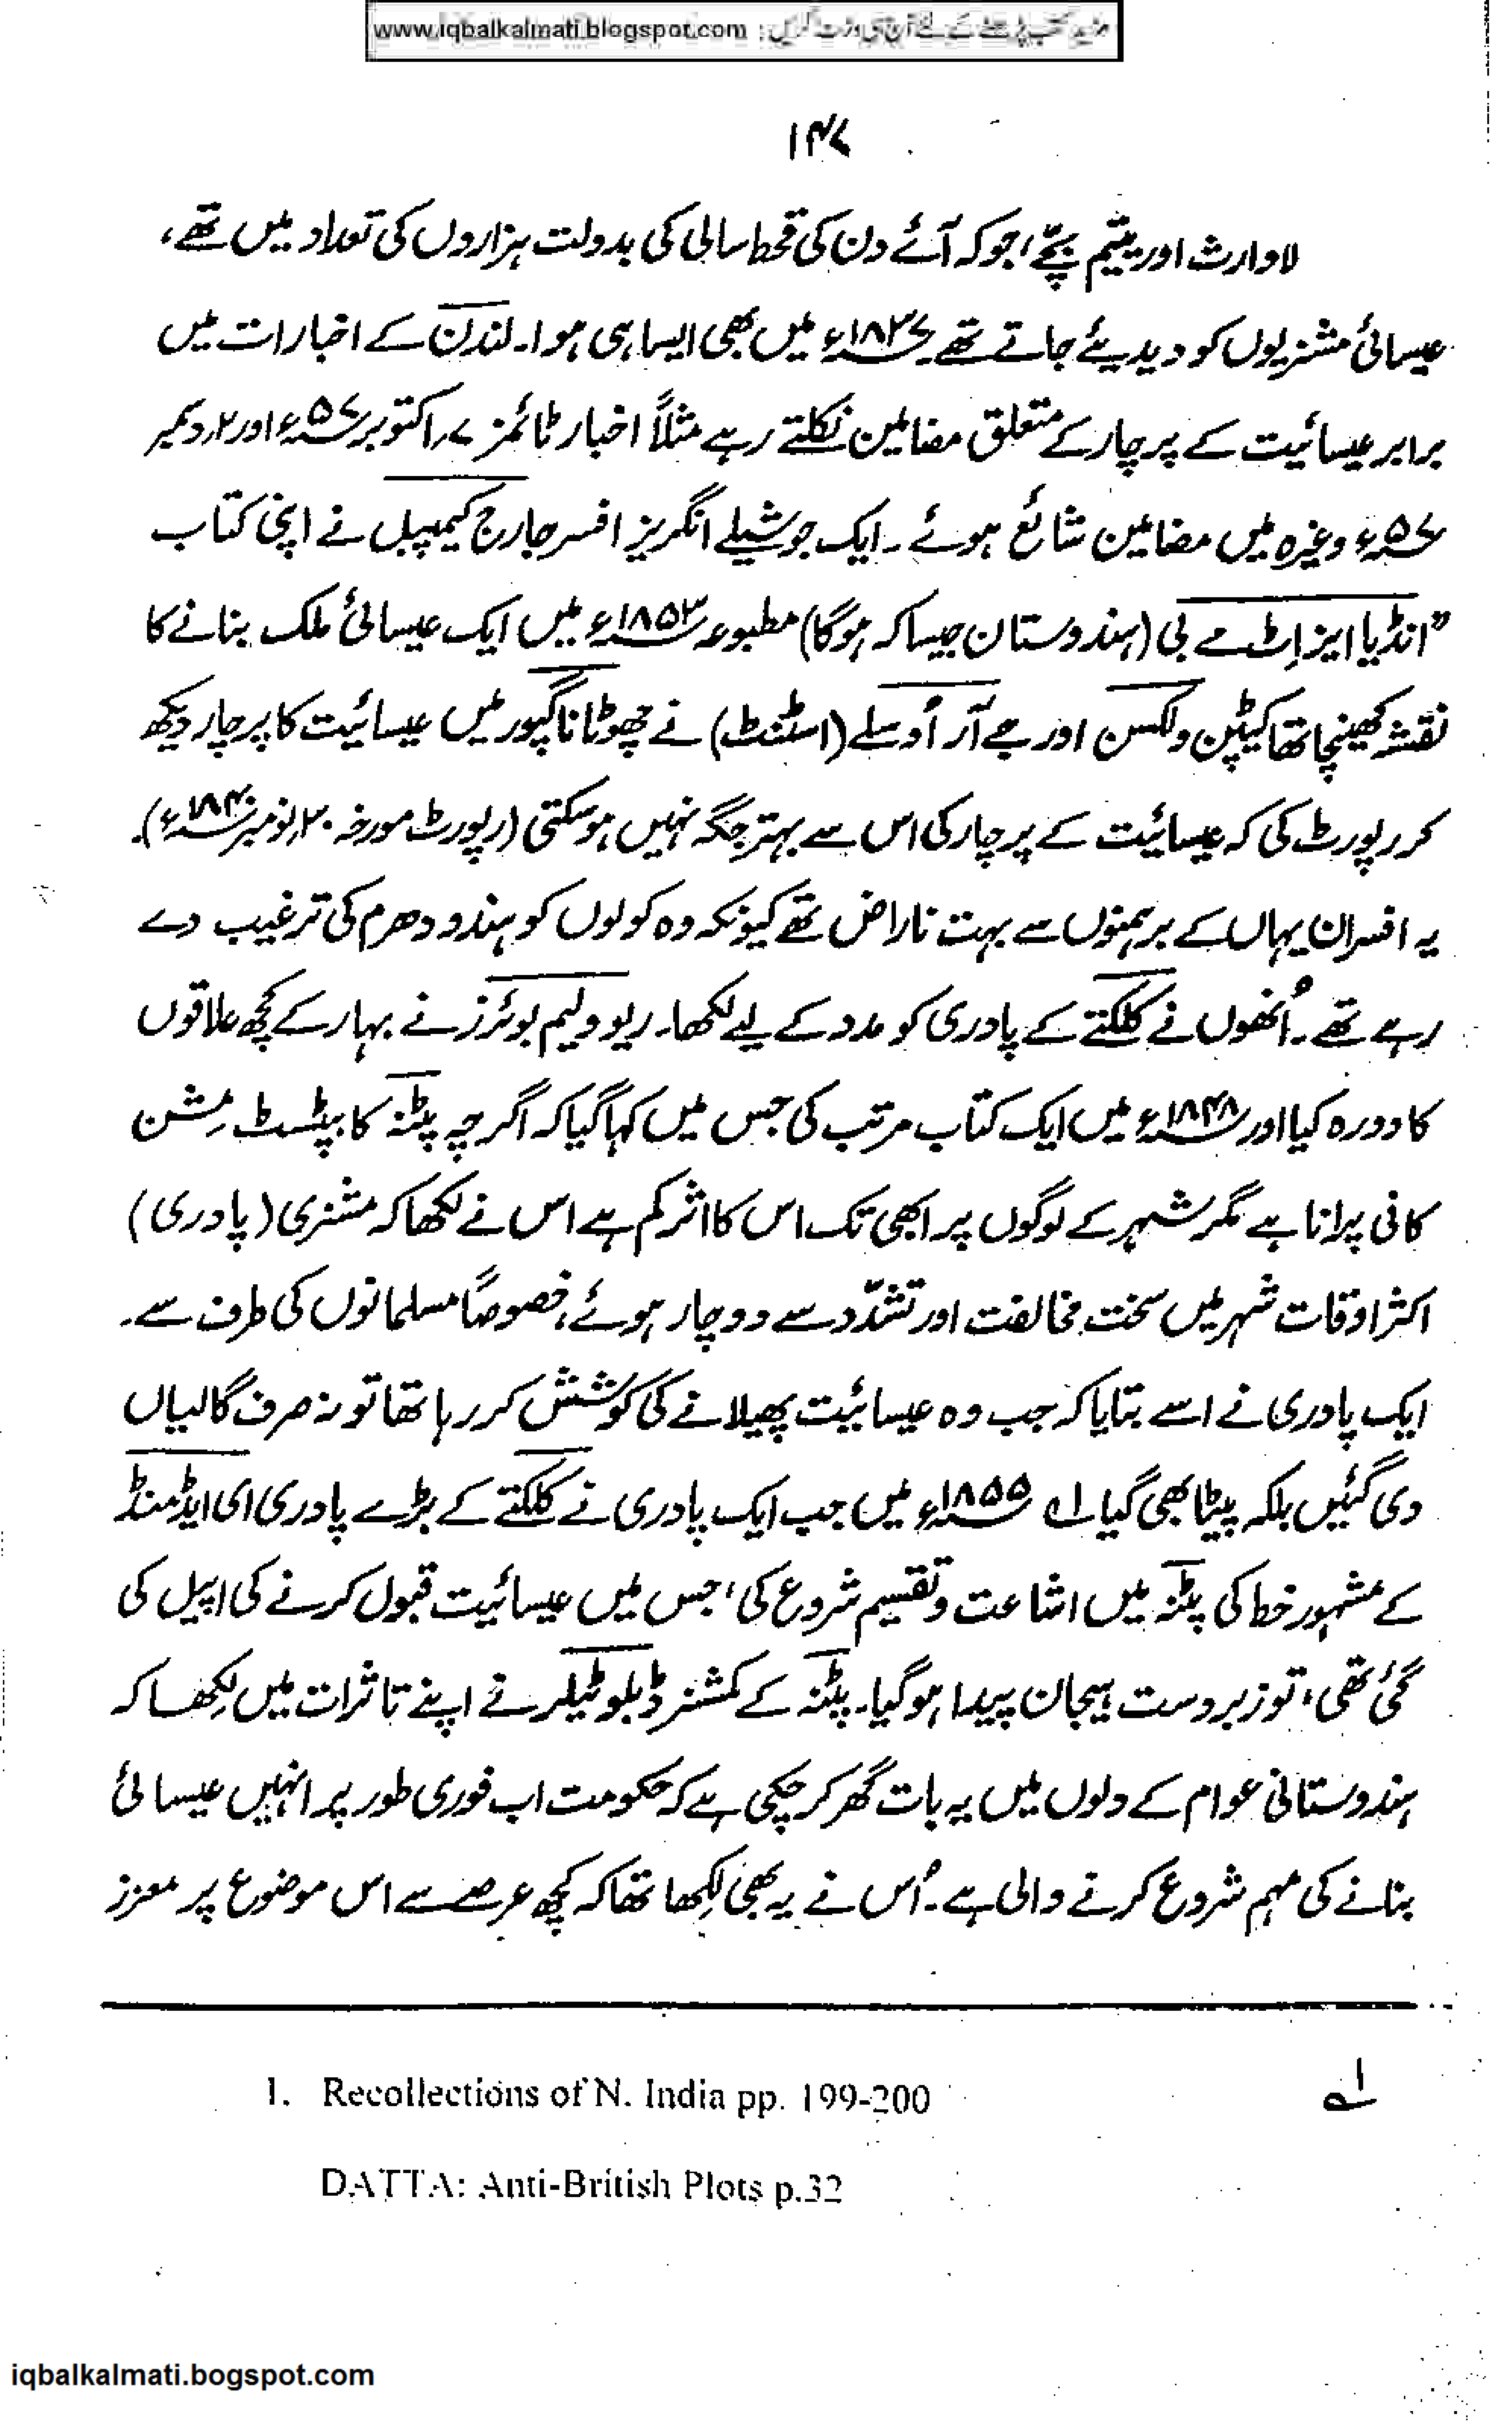 www.iqbalkalmati.blogspot.com : مزید کتب پڑھنے کے لئے آج ہی وزٹ کریں
۱۴۷
لاوارث اور یتیم بچّے، جو کہ آئے دن کی قحط سالی کی بدولت ہزاروں کی تعداد میں تھے،
عیسائی مشنریوں کو دیدیئے جاتے تھے۔ ۱۸۳۷ء میں بھی ایسا ہی ہوا۔ لندن کے اخبارات میں
برابر عیسائیت کے پرچار کے متعلق مضامین نکلتے رہے مثلاً اخبار ٹائمز ۷؍اکتوبر ۵۷ء اور ۲؍دیمبر
۵۷ء وغیرہ میں مضامین شائع ہوئے۔ ایک جوشیلے انگریز افسر جارج کیمپبل نے اپنی کتاب
"انڈیا ایز اِٹ مے بی (ہندوستان جیسا کہ ہوگا) مطبوعہ ۱۸۵۳ء میں ایک عیسائی ملک بنانے کا
نقشہ کھینچا تھا کیپٹن ولکسن اور جے آر اُوسلے (اسٹنٹ) نے چھوٹا ناگپور میں عیسائیت کا پرچار دیکھ
کر رپورٹ کی کہ عیسائیت کے پرچار کی اس سے بہتر جگہ نہیں ہو سکتی (رپورٹ مورخہ ۲۰؍نومبر ۱۸۴۰ء)۔
یہ افسران یہاں کے برہمنوں سے بہت ناراض تھے کیونکہ وہ کولوں کو ہندو دھرم کی ترغیب دے
رہے تھے۔ اُنھوں نے کلکتے کے پادری کو مدد کے لیے لکھا۔ ریو ولیم بوئرز نے بہار کے کچھ علاقوں
کا دورہ کیا اور ۱۸۴۸ء میں ایک کتاب مرتب کی جس میں کہا گیا کہ اگرچہ پٹنہ کا بپٹسٹ مِشن
کافی پرانا ہے مگر شہر کے لوگوں پر ابھی تک اس کا اثر کم ہے اس نے لکھا کہ مشنری (پادری)
اکثر اوقات شہر میں سخت مخالفت اور تشدّد سے دو چار ہوئے، خصوصاً مسلمانوں کی طرف سے۔
ایک پادری نے اسے بتایا کہ جب وہ عیسائیت پھیلانے کی کوشش کر رہا تھا تو نہ صرف گالیاں
دی گئیں بلکہ پیٹا بھی گیا ۱؎ ۱۸۵۵ء میں جب ایک پادری نے کلکتے کے بڑے پادری ای ایڈمنڈ
کے مشہور خط کی پٹنہ میں اشاعت و تقسیم شروع کی، جس میں عیسائیت قبول کرنے کی اپیل کی
گئی تھی، تو زبردست ہیجان پیدا ہو گیا۔ پٹنہ کے کمشنر ڈبلو ٹیلر نے اپنے تاثرات میں لِکھا کہ
ہندوستانی عوام کے دلوں میں یہ بات گھر کر چکی ہے کہ حکومت اب فوری طور پر انہیں عیسائی
بنانے کی مہم شروع کرنے والی ہے۔ اُس نے یہ بھی لِکھا تھا کہ کچھ عرصے سے اس موضوع پر معزز
۱؎ 1. Recollections of N. India pp. 199-200
DATTA: Anti-British Plots p.32
iqbalkalmati.bogspot.com